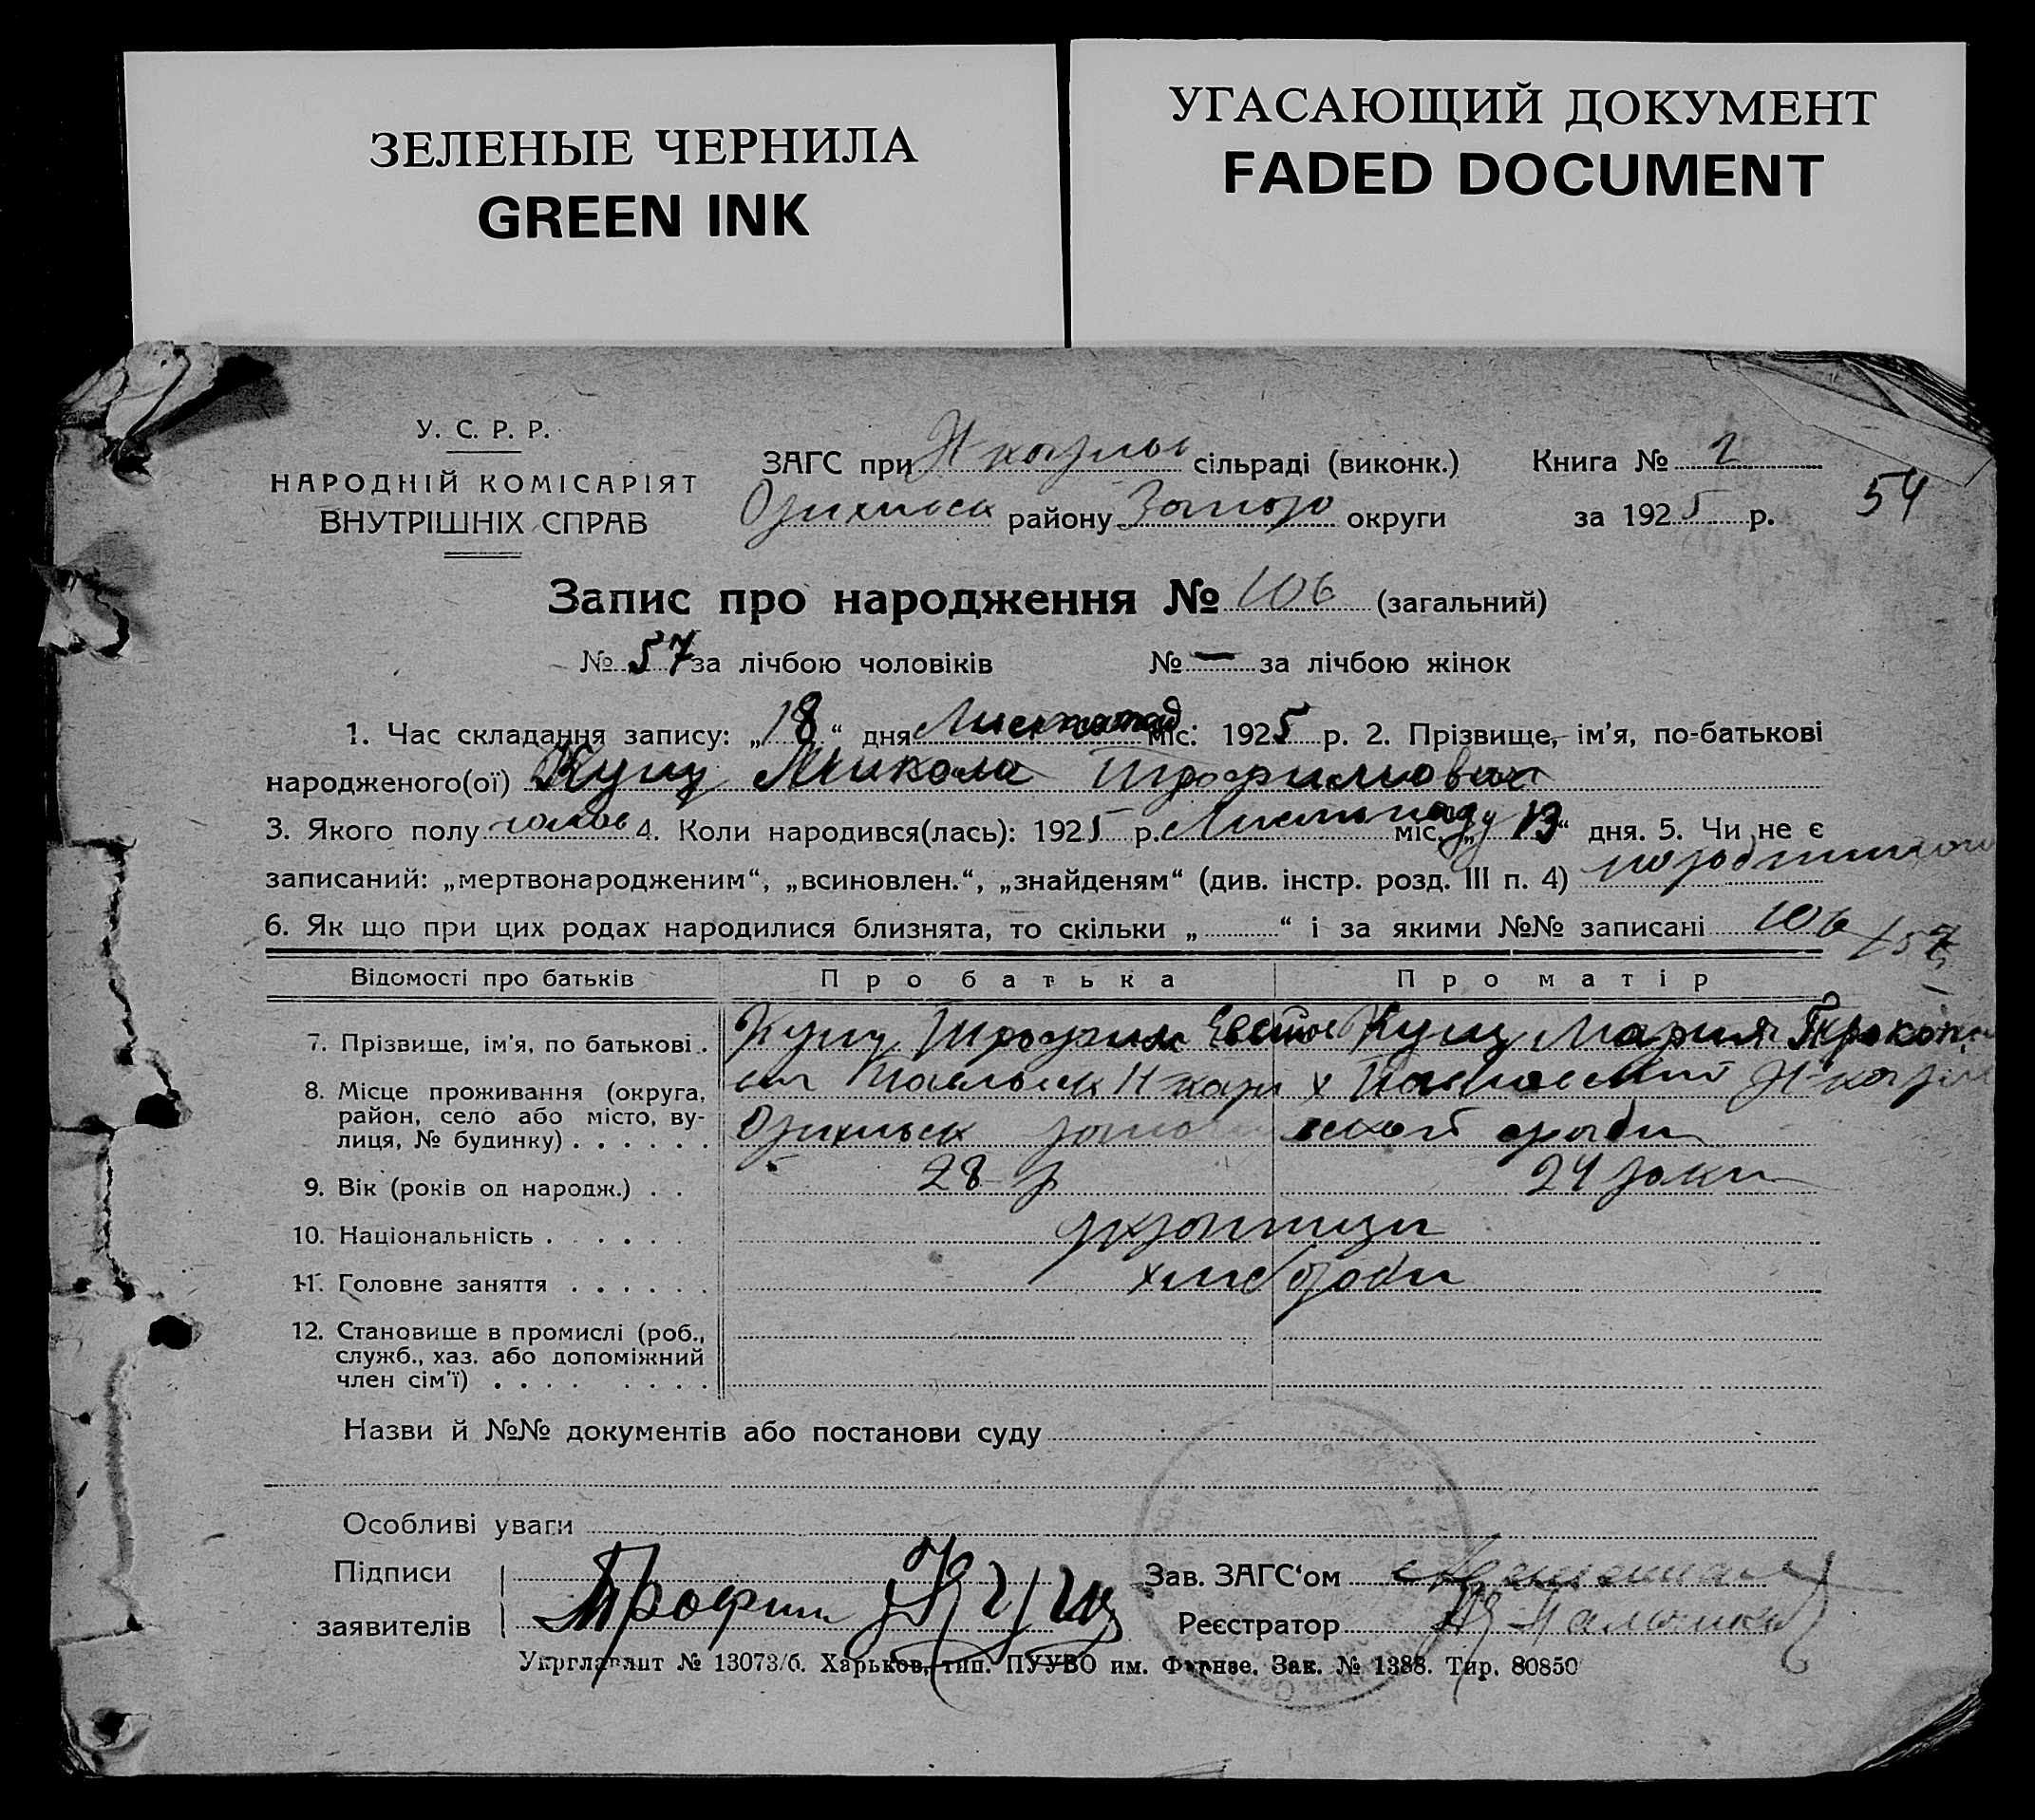 ЗЕЛЕНЫЕ ЧЕРНИЛА
GREEN INK
УГАСАЮЩИЙ ДОКУМЕНТ
FADED DOCUMENT
У. С. Р. Р.
НАРОДНІЙ КОМІСАРІЯТ
ВНУТРІШНІХ СПРАВ
ЗАГС при сільраді (виконк.) Книга № 2
району округи за 1925 р. 54
Запис про народження № 106 (загальний)
№ 57 за лічбою чоловіків № — за лічбою жінок
1. Час складання запису: „18“ дня Листопад міс. 1925 р. 2. Прізвище, ім’я, по-батькові
народженого(ої) Кущ Микола Трофимович
3. Якого полу 4. Коли народився(лась): 1925 р. Листопаду міс. „13“ дня. 5. Чи не є
записаний: „мертвонародженим“, „всиновлен.“, „знайденям“ (див. інстр. розд. III п. 4)
6. Як що при цих родах народилися близнята, то скільки „ “ і за якими №№ записані 106/57
Відомості про батьків Про батька Про матір
7. Прізвище, ім’я, по батькові . Кущ Трофим Кущ Мария
8. Місце проживання (округа,
район, село або місто, ву-
лиця, № будинку) . . . . . .
9. Вік (років од народж.) . . 28 р 24 роки
10. Національність . . . . . . українци
11. Головне заняття . . . . . . хлебороби
12. Становище в промислі (роб.,
служб., хаз. або допоміжний
член сім’ї) . . . . . . . .
Назви й №№ документів або постанови суду
Особливі уваги
Підписи
заявителів
Трофим Кущ
Зав. ЗАГС‘ом
Реєстратор
Укрглавлит № 13073/б. Харьков, тип. ПУУВО им. Фрунзе. Зак. № 1388. Тир. 80850